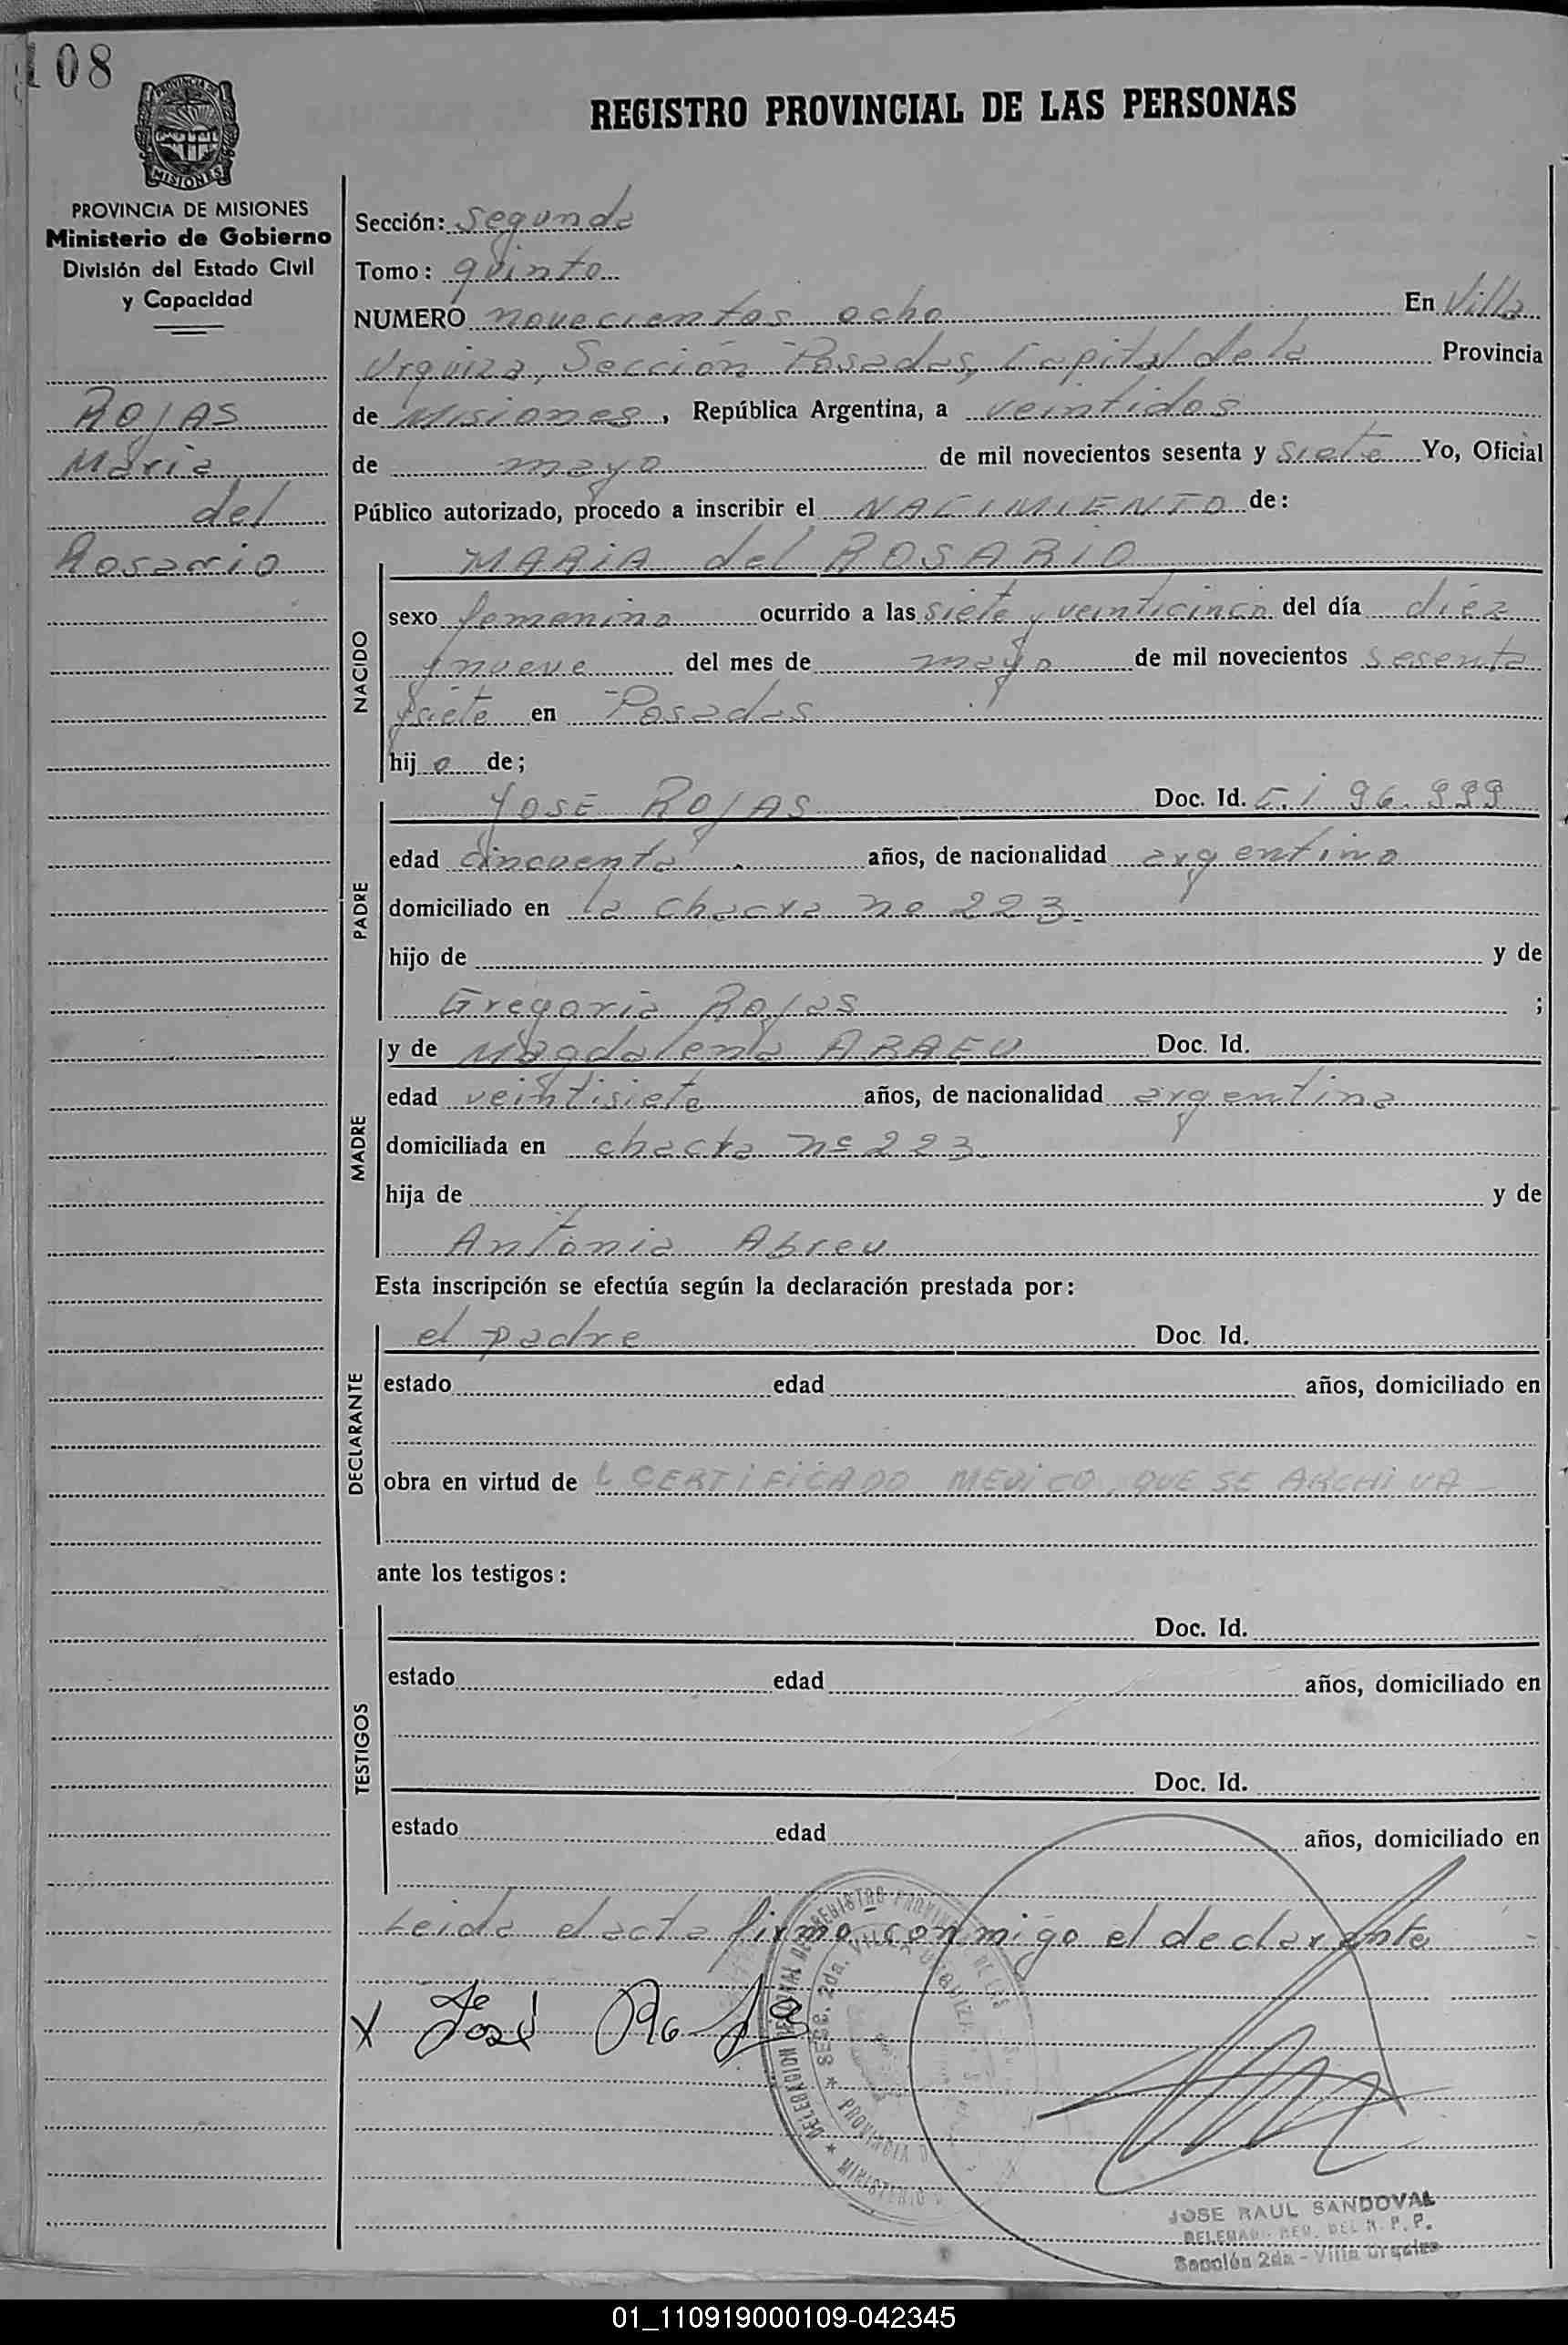 108
PROVINCIA DE MISIONES
REGISTRO PROVINCIAL DE LAS PERSONAS
PROVINCIA DE MISIONES
Ministerio de Gobierno
División del Estado Civil
y Capacidad
ROJAS
Maria
del
Rosario
Sección: segunda
Tomo: quinto
NUMERO novecientos ocho En Villa
Urquiza, Sección Posadas, Capital de la Provincia
de Misiones, República Argentina, a veintidos
de mayo de mil novecientos sesenta y siete Yo, Oficial
Público autorizado, procedo a inscribir el NACIMIENTO de:
MARIA del ROSARIO
NACIDO
sexo femenino ocurrido a las siete y veinticinco del día diez
y nueve del mes de mayo de mil novecientos sesenta
y siete en Posadas
hij o de;
PADRE
JOSE ROJAS Doc. Id. C.I 96.999
edad cincuenta años, de nacionalidad argentino
domiciliado en la chacra no 223.
hijo de y de
Gregoria Rojas ;
MADRE
y de Magdalena ABREU Doc. Id.
edad veintisiete años, de nacionalidad argentina
domiciliada en chacra nº 223.
hija de y de
Antonia Abreu
Esta inscripción se efectúa según la declaración prestada por:
DECLARANTE
el padre Doc. Id.
estado edad años, domiciliado en
obra en virtud de L CERTIFICADO MEDICO, QUE SE ARCHIVA
ante los testigos:
TESTIGOS
Doc. Id.
estado edad años, domiciliado en
Doc. Id.
estado edad años, domiciliado en
Leida el acta firmo conmigo el declarante
X José Rojas
JOSE RAUL SANDOVAL
DELEGADO REG. DEL R. P. P.
Sección 2da - Villa Urquiza
01_110919000109-042345